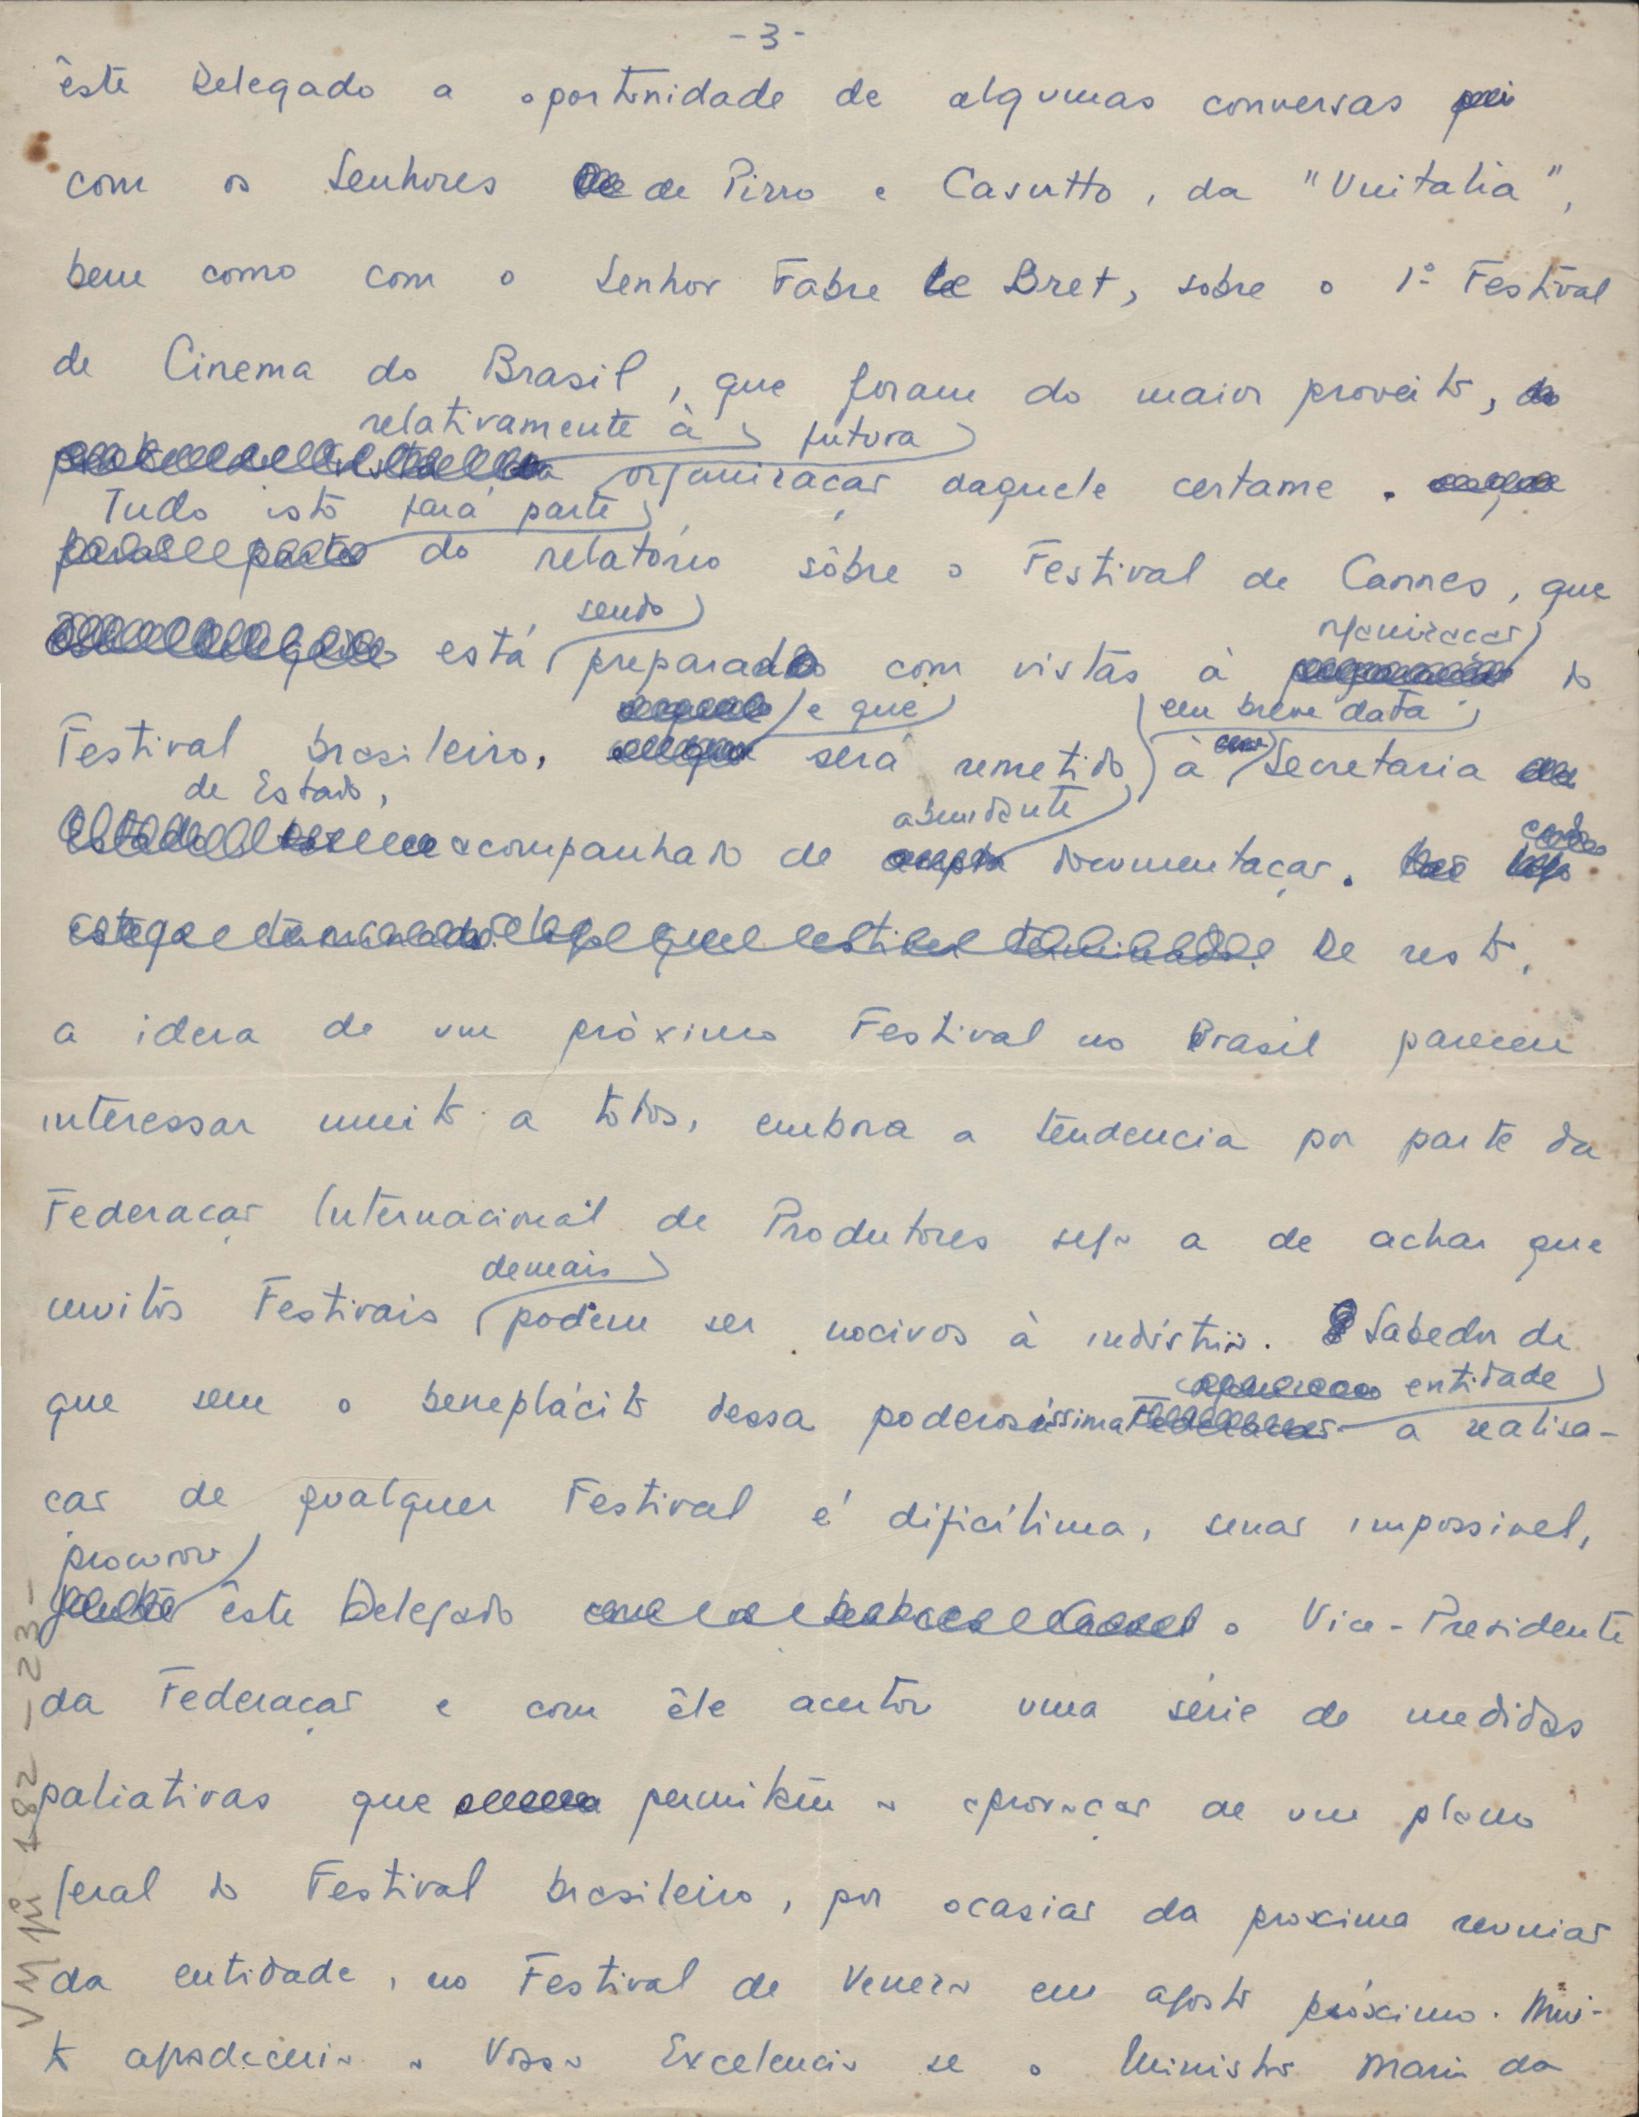 - 3 -
êste Delegado a oportunidade de algumas conversas
com os Senhores de Pirro e Casutto, da "Unitalia",
bem como com o Senhor Fabre Le Bret, sobre o 1º Festival
de Cinema do Brasil, que foram do maior proveito,
relativamente à futura
organização daquele certame.
Tudo isto fará parte
do relatório sôbre o Festival de Cannes, que
sendo
está preparado com vistas à organização do
e que em breve data
Festival brasileiro, será remetido à Secretaria
de Estado,
abundante
acompanhado de documentação.
De resto,
a ideia de um próximo Festival no Brasil pareceu
interessar muito a todos, embora a tendencia por parte da
Federação Internacional de Produtores seja a de achar que
demais
muitos Festivais podem ser nocivos à indústria. Sabedor de
entidade
que sem o beneplácito dessa poderosíssima a realisa-
ção de qualquer Festival é dificílima, senão impossivel,
procurou
êste Delegado o Vice-Presidente
da Federação e com êle acertou uma série de medidas
paliativas que permitem a aprovação de um plano
geral do Festival brasileiro, por ocasião da proxima reunião
da entidade, no Festival de Veneza em agosto próximo. Mui-
to agradeceria a Vossa Excelencia se o Ministro Mario da
VM pi 182 - 23 -